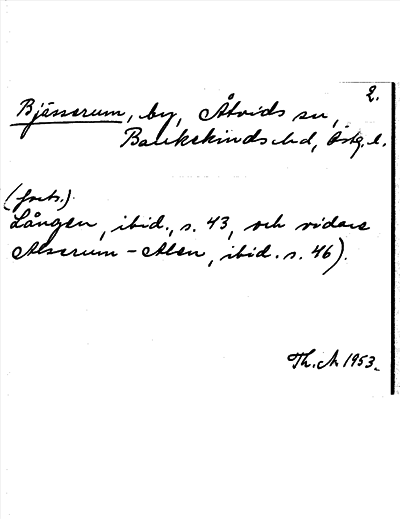 2.
Bjässerum, by, Åtvids sn,
Bankekinds hd, Östg. l.
(forts.).
Lången, ibid., s. 43, och vidare
Alserum - Alen, ibid. s. 46).
Th. A. 1953.